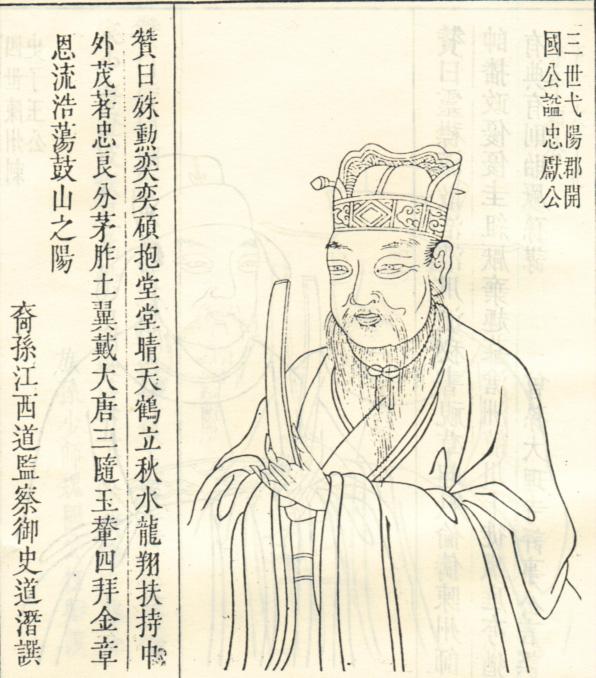 三世弋陽郡開
國公諡忠獻公
贊曰殊勲奕奕碩抱堂堂晴天鶴立秋水龍翔扶持中
外茂著忠良分茅胙土翼戴大唐三隨玉輦四拜金章
恩流浩蕩鼓山之陽
裔孫江西道監察御史道潛譔